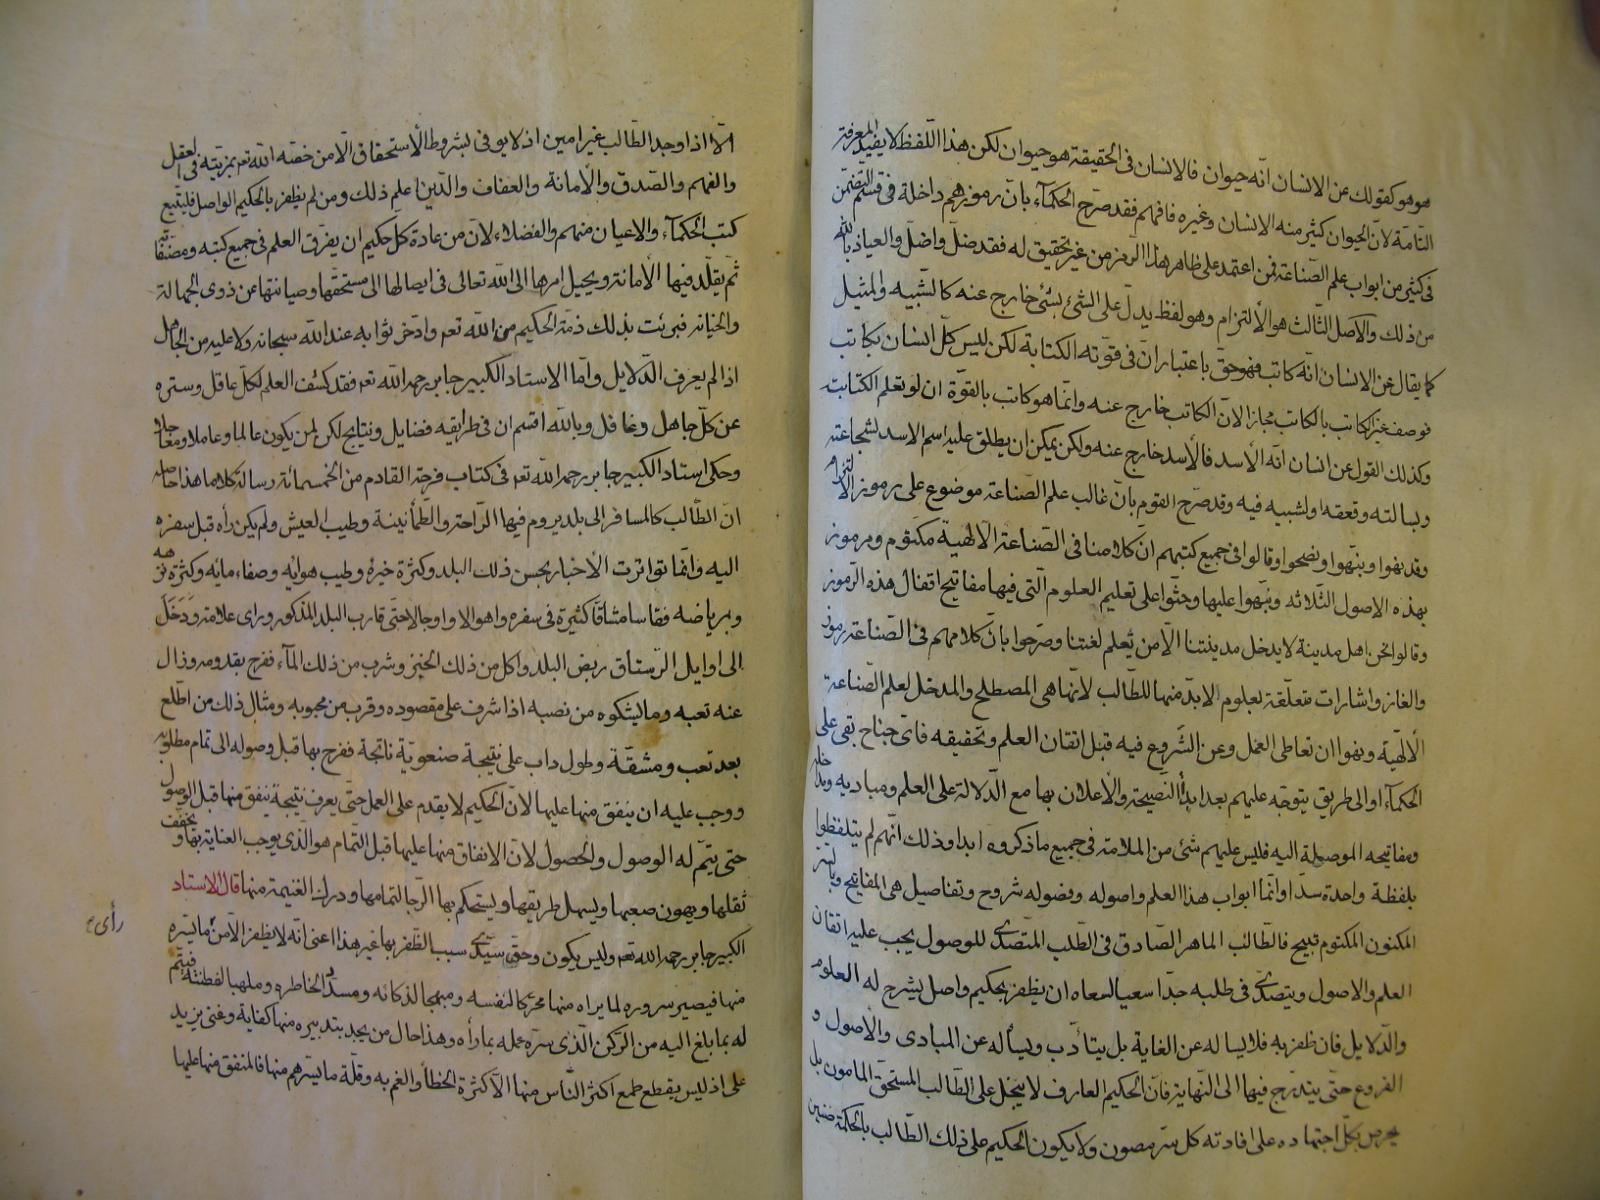 هو هو كقولك عن الانسان انّه حيوان فالانسان فى الحقيقة هو حيوان لكن هذا اللّفظ لا يفيد المعرفة
التامّة لانّ الحيوان كثير منه الانسان وغيره فافهم فقد صرّح الحكمآء بانّ رموزهم داخلة فى قسم التضمّن
فى كثير من ابواب علم الصّناعة فمن اعتمد على ظاهر هذا الرمز من غير تحقيق له فقد ضلّ واضلّ والعياذ بالله
من ذلك والاصل الثّالث هو الألتزام وهو لفظ يدلّ على الشئ بشئ خارج عنه كالتّشبيه والمثيل
كما يقال عن الانسان انّه كاتب فهو حقّ باعتبار انّ فى قوّته الكتابة لكن ليس كلّ انسان بكاتب
فوصف غير الكاتب بالكاتب مجازا لانّ الكاتب خارج عنه وانّما هو كاتب بالقوّة ان لو تعلم الكتابت
وكذلك القول عن انسان انّه الأسد فالأسد خارج عنه ولكن يمكن ان يطلق عليه اسم الاسد لشجاعته
وبسالته وقعقه ولشبيه فيه وقد صرّح القوم بانّ غالب علم الصّناعة موضوع على رموز الألتزام
وقد نهوا ونبّهوا ونصحوا وقالوا فى جميع كتبهم انّ كلامنا فى الصّناعة الألهيّة مكتوم ومرموز
بهذه الاصول الثّلاثه ونبّهوا عليها وحثّوا على تعليم العلوم الّتى فيها مفاتيح اقفال هذه الرّموز
وقالوا نحن اهل مدينة لا يدخل مدينتنا الّا من يُعلم لغتنا وصرّحوا بانّ كلامهم فى الصّناعة رموز
والغاز واشارات متعلّقة بعلوم لابدّ منها للطّالب لانّها هى المصطلح والمدخل لعلم الصّناعة
الألهيّة ونهوا ان تعاطى العمل وعن الشّروع فيه قبل اتقان العلم وتحقيقه فاىّ جناح بقى على
الحكمآء او الى طريق يتوجّه عليهم بعد ابدأ النّصيحة والأعلان بها مع الدّلالة على العلم ومباديه ومداخله
ومفاتيحه الموصولة اليه فليس عليهم شئ من الملامة فى جميع ما ذكروه ابدا وذلك انّهم لم يتلفظوا
بلفظة واحدة سدّا وانّما ابواب هذا العلم واصوله وفصوله شروح وتفاصيل هى المفاتيح وبالسّر
المكنون المكتوم تبيح فالطّالب الماهر الصّادق فى الطّلب المتصدّى للوصول يجب عليه اتقان
العلم والاصول ويتصدّى فى طلبه جدّا سعيا لسعاه ان يظفر بحكيم واصل يشرح له العلوم
والدّلايل فان ظفر به فلا يساله عن الغاية بل يتأدّب ويسأله عن المبادى والأصول و
الفروع حتّى يتدرّج فيها الى النّهاية فانّ الحكيم العارف لا يبخل على الطّالب المستحقّ المامون بل
يحرص بكلّ اجتهاده على افادته كل سرّ مصون ولا يكون الحكيم على ذلك الطّالب بالحكمة ضنين
الّا اذا وجد الطّالب غير امين اذ لا يوفى بشروط الأستحقاق الّا من خصّه الله تعه بمزيّته فى العقل
والفهم والصّدق والأمانة والعفاف والدّين اعلم ذلك ومن لم يظفر بالحكيم الواصل فليتّبع
كتب الحكمآء والاعيان منهم والفضلاء لانّ من عادة كلّ حكيم ان يفرّق العلم فى جميع كتبه ومصنّفاته
ثمّ يقلّد فيها الأمانة ويحيل امرها الى الله تعالى فى ايصالها الى مستحقّها وصيانتها عن ذوى الجهالة
والخيانة فبرئت بذلك ذمّة الحكيم من الله تعه وادّخر ثوابه عند الله سبحانه ولا عليه من الجاهل
اذا لم يعرف الدّلايل وامّا الاستاد الكبير جابر رحمه الله تعه فقد كشف العلم لكلّ عاقل وستره
عن كلّ جاهل وغافل وبالله اقسم ان فى طريقه فضايل ونتايج لكن لمن يكون عالما وعاملا
وحكى استاد الكبير جابر رحمه الله تعه فى كتاب فرحة القادم من الخمسمائة رسالة كلاما هذا حاصله
انّ الطّالب كالمسافر الى بلد يروم فيها الرّاحة والطّمأنينة وطيب العيش ولم يكن رأه قبل سفره
اليه وانّما تواترت الأخبار بحسن ذلك البلد وكثرة خيره وطيب هوائه وصفاء مائه وكثرة نزهه
وبرياضه فقاسا مشاقّا كثيرة فى سفره واهوالا واوجالا حتّى قارب البلد المذكور وراى علامته ودَخَلَ
الى اوايل الرّستاق ربض البلد واكل من ذلك الخبز وشرب من ذلك المآء ففرح بقدومه وذال
عنه تعبه وما ليشكوه من نصبه اذا شرف على مقصوده وقرب من محبوبه ومثال ذلك من اطّلع
بعد تعب ومشقّة وطول داب على نتيجة صنعويّة ناتجة ففرح بها قبل وصوله الى تمام مطلوبه
ووجب عليه ان ينفق منها عليها لانّ الحكيم لا يقدم على العمل حتّى يعرف نتيجة ينفق منها قبل الوصول
حتى يتمّ له الوصول والحصول لانّ الانفاق منها عليها قبل التّمام هو الّذى يوجب العناية بها ويخفّف
ثقلها ويهون صعبها ويسهل طريقها ويستحكم بها الرّجا لتمامها ودرك الغنيمة منها قال الاستاد
الكبير جابر رحمه الله تعه وليس يكون وحقّ سيّدى سبب الظّفر بها غير هذا اعنى انّه لا يظفر الّا من ما يسرّه
منها فيصير سروره لما يراه منها محرّكا لنفسه ومبهجا لذكائه ومسدّد الخاطره وملهبا لفطنته فيتمّ
له بما بلغ اليه من الرّكن الّذى سرّه عمله بما رأه وهذا حال من يجد بتدبيره منها كفاية وغنى يزيد
على اذ ليس يقطع طمع اكثر النّاس منها الّا كثرة الخطأ والغم به وقلّة ما يسرهم منها فالمنفق منها عليها
رأى